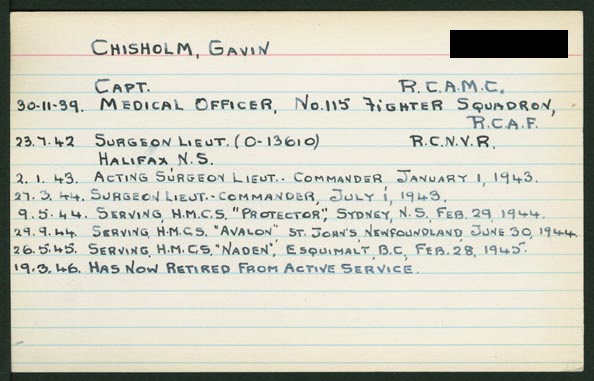 CHISHOLM, GAVIN
CAPT. R.C.A.M.C.
30-11-39. MEDICAL OFFICER, No. 115 FIGHTER SQUADRON,
R.C.A.F.
23.7.42 SURGEON LIEUT. (O-13610) R.C.N.V.R.
HALIFAX N.S.
2.1.43. ACTING SURGEON LIEUT.- COMMANDER JANUARY 1, 1943.
27.3.44. SURGEON LIEUT.-COMMANDER, JULY 1, 1943.
9.5.44. SERVING, H.M.C.S. "PROTECTOR", SYDNEY, N.S, FEB. 29, 1944.
29.9.44. SERVING, H.M.C.S. "AVALON" ST. JOHN'S, NEWFOUNDLAND, JUNE 30, 1944.
26.5.45. SERVING, H.M.C.S, "NADEN", ESQUIMALT, B.C, FEB. 28, 1945.
19.3.46. HAS NOW RETIRED FROM ACTIVE SERVICE.